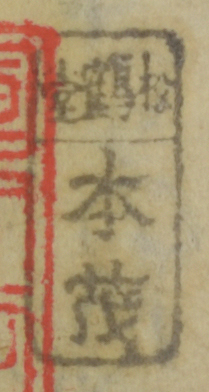 松鶴堂
本茂